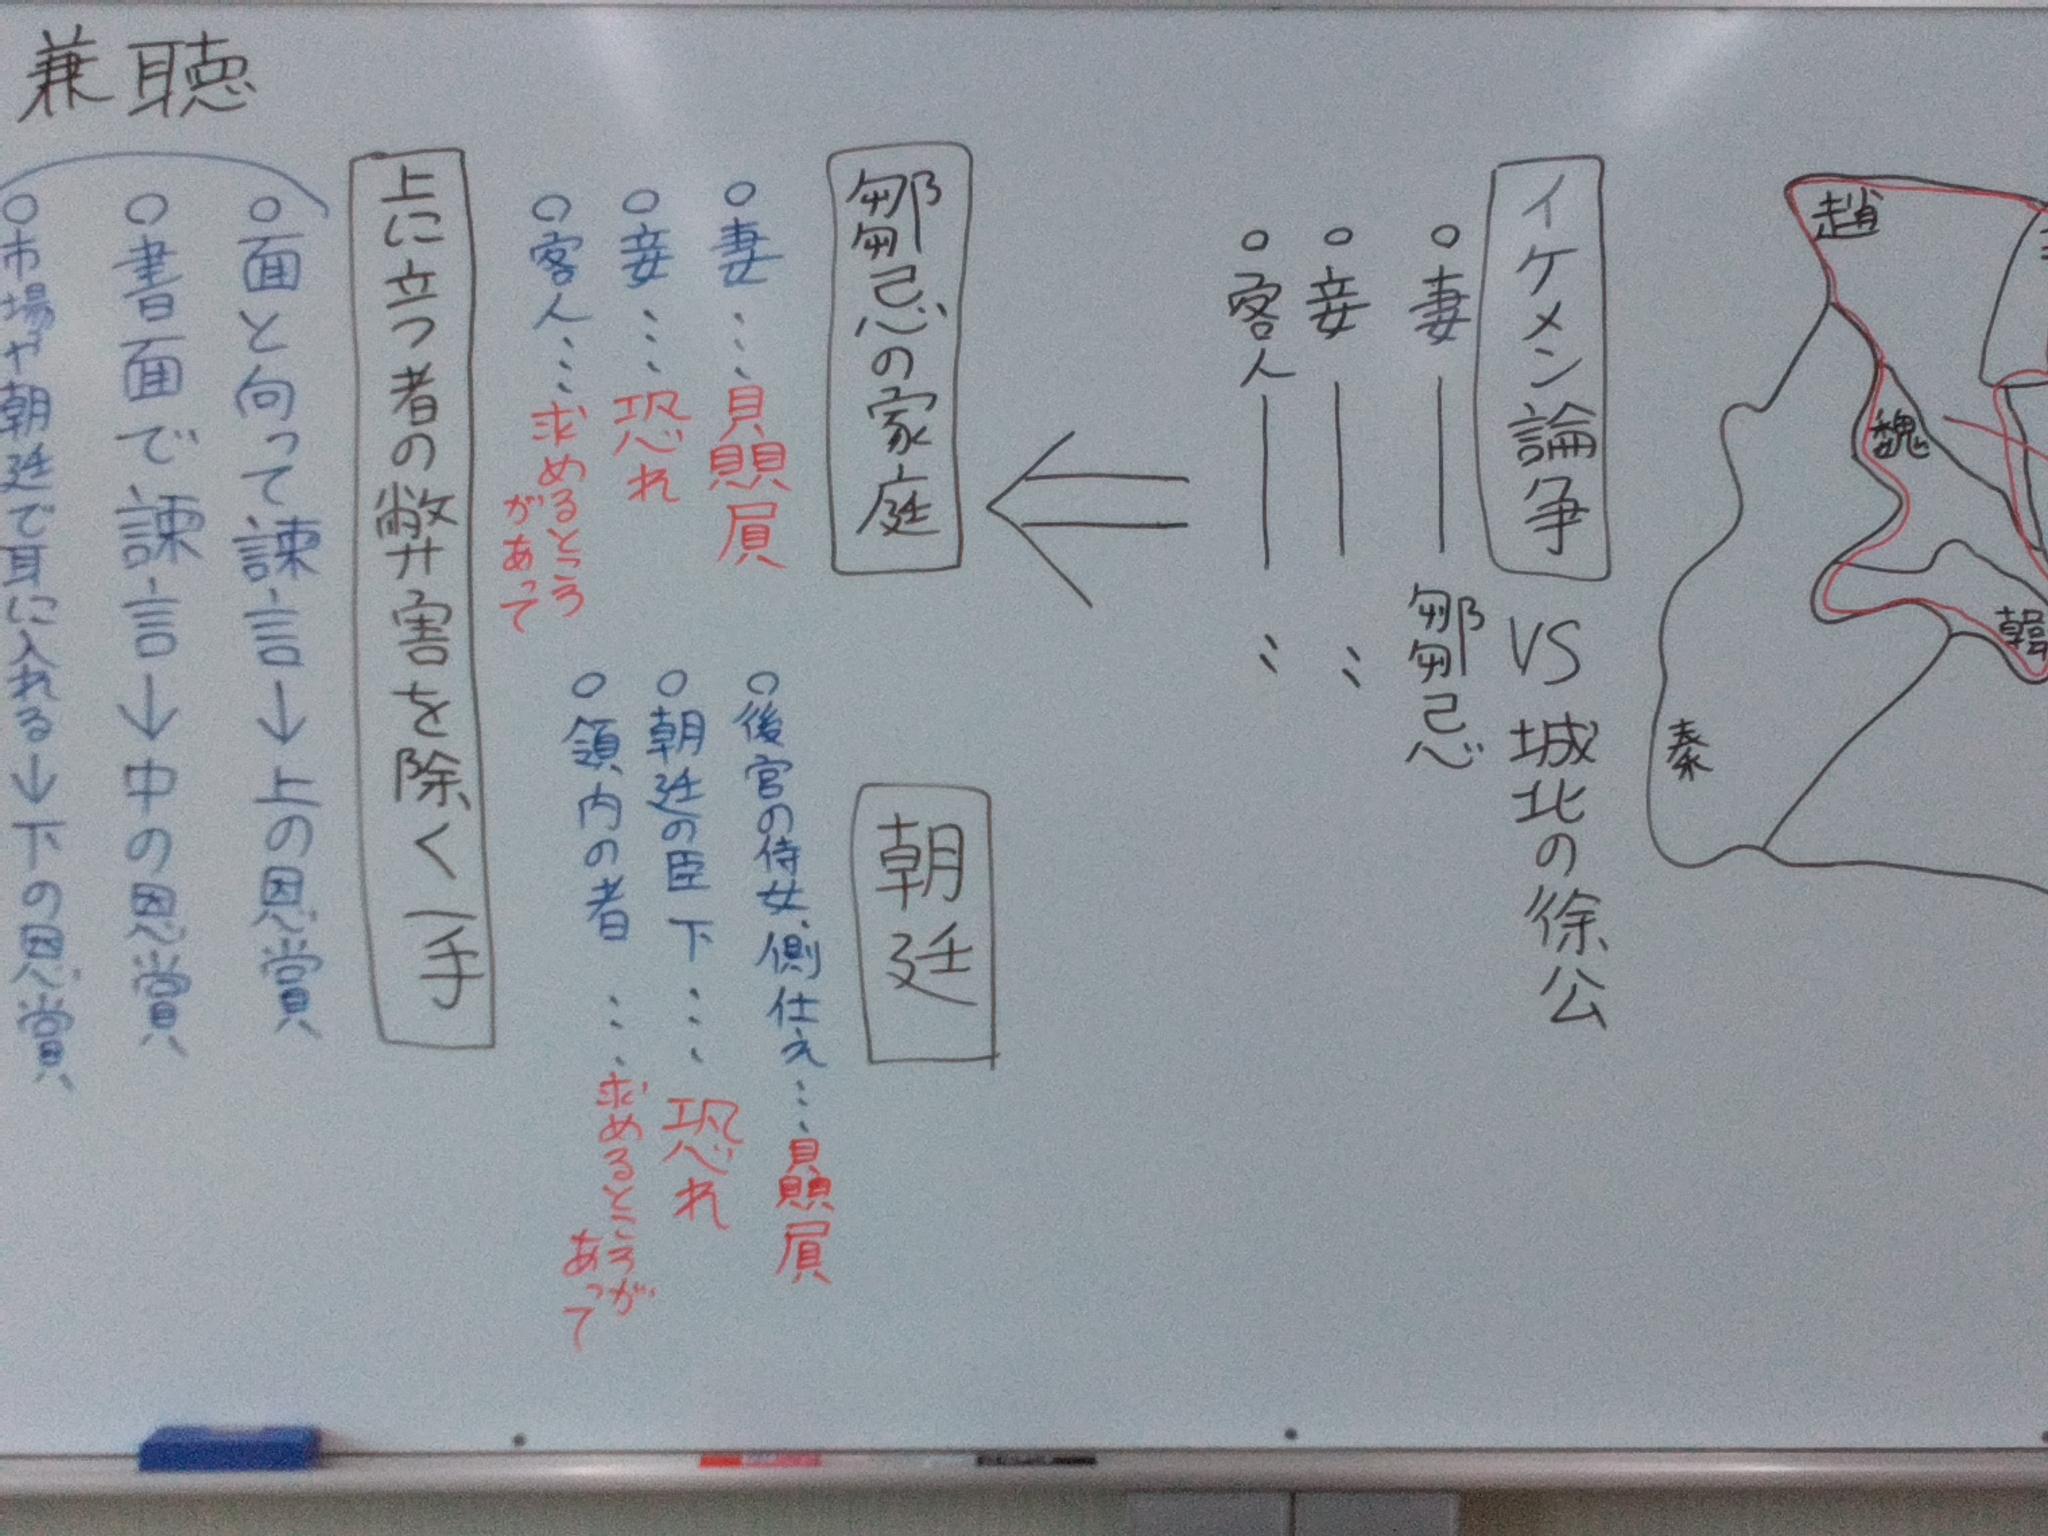 趙
魏
韓
秦
イケメン論争 VS 城北の徐公
○妻 ― 鄒忌
○妾 ― 〃
○客人 ― 〃
鄒忌の家庭
○妻…贔屓
○妾…恐れ
○客人…求めるところ
があって
朝廷
○後宮の侍女、側仕え…贔屓
○朝廷の臣下…恐れ
○領内の者…求めるところが
あって
上に立つ者の弊害を除く一手
○面と向って諫言→上の恩賞
○書面で諫言→中の恩賞
○市場や朝廷で耳に入れる→下の恩賞
兼聴